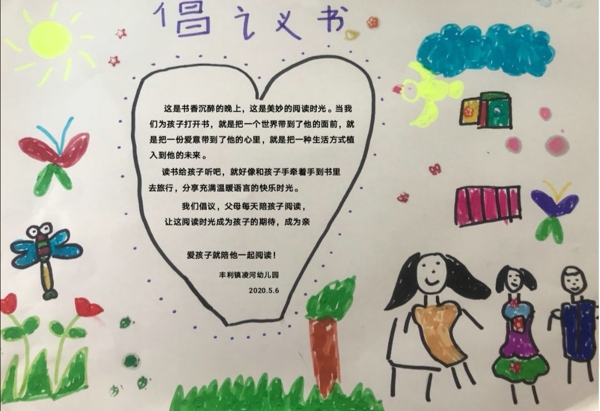 倡议书
这是书香沉醉的晚上，这是美妙的阅读时光。当我
们为孩子打开书，就是把一个世界带到了他的面前，就
是把一份爱意带到了他的心里，就是把一种生活方式植
入到他的未来。
读书给孩子听吧，就好像和孩子手牵着手到书里
去旅行，分享充满温暖语言的快乐时光。
我们倡议，父母每天陪孩子阅读，
让这阅读时光成为孩子的期待，成为亲
爱孩子就陪他一起阅读！
丰利镇凌河幼儿园
2020.5.6